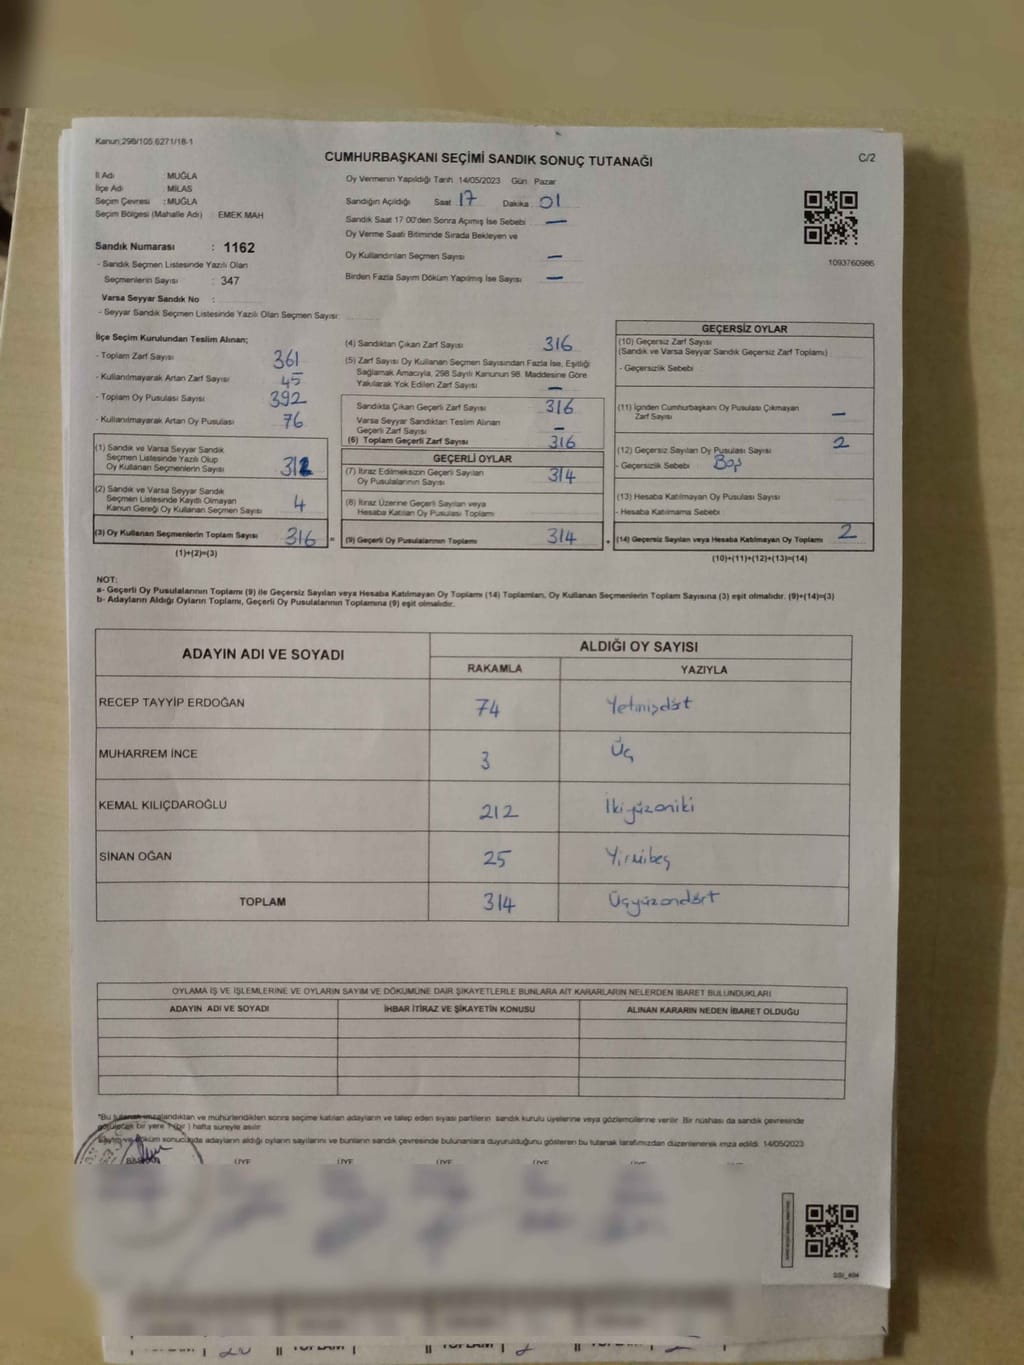 Kanun:298/105.6271/18-1
CUMHURBAŞKANI SEÇİMİ SANDIK SONUÇ TUTANAĞI
C/2
İl Adı : MUĞLA
İlçe Adı : MİLAS
Seçim Çevresi : MUĞLA
Seçim Bölgesi (Mahalle Adı) : EMEK MAH
Sandık Numarası : 1162
- Sandık Seçmen Listesinde Yazılı Olan
Seçmenlerin Sayısı : 347
Varsa Seyyar Sandık No :
- Seyyar Sandık Seçmen Listesinde Yazılı Olan Seçmen Sayısı:
Oy Vermenin Yapıldığı Tarih 14/05/2023 Gün Pazar
Sandığın Açıldığı Saat 17 Dakika 01
Sandık Saat 17 00'den Sonra Açımış İse Sebebi —
Oy Verme Saati Bitiminde Sırada Bekleyen ve
Oy Kullandırılan Seçmen Sayısı —
Birden Fazla Sayım Döküm Yapılmış İse Sayısı —
1093760986
İlçe Seçim Kurulundan Teslim Alınan;
- Toplam Zarf Sayısı 361
- Kullanılmayarak Artan Zarf Sayısı 45
- Toplam Oy Pusulası Sayısı 392
- Kullanılmayarak Artan Oy Pusulası 76
(1) Sandık ve Varsa Seyyar Sandık
Seçmen Listesinde Yazılı Olup
Oy Kullanan Seçmenlerin Sayısı 312
(2) Sandık ve Varsa Seyyar Sandık
Seçmen Listesinde Kayıtlı Olmayan
Kanun Gereği Oy Kullanan Seçmen Sayısı 4
(3) Oy Kullanan Seçmenlerin Toplam Sayısı 316
(1)+(2)=(3)
(4) Sandıktan Çıkan Zarf Sayısı 316
(5) Zarf Sayısı Oy Kullanan Seçmen Sayısından Fazla İse, Eşitliği
Sağlamak Amacıyla, 298 Sayılı Kanunun 98. Maddesine Göre
Yakılarak Yok Edilen Zarf Sayısı —
Sandıkta Çıkan Geçerli Zarf Sayısı 316
Varsa Seyyar Sandıktan Teslim Alınan
Geçerli Zarf Sayısı —
(6) Toplam Geçerli Zarf Sayısı 316
GEÇERLİ OYLAR
(7) İtiraz Edilmeksizin Geçerli Sayılan
Oy Pusulalarının Sayısı 314
(8) İtiraz Üzerine Geçerli Sayılan veya
Hesaba Katılan Oy Pusulası Toplamı
(9) Geçerli Oy Pusulalarının Toplamı 314
GEÇERSİZ OYLAR
(10) Geçersiz Zarf Sayısı
(Sandık ve Varsa Seyyar Sandık Geçersiz Zarf Toplamı)
- Geçersizlik Sebebi
(11) İçinden Cumhurbaşkanı Oy Pusulası Çıkmayan
Zarf Sayısı —
(12) Geçersiz Sayılan Oy Pusulası Sayısı 2
- Geçersizlik Sebebi Boş
(13) Hesaba Katılmayan Oy Pusulası Sayısı
- Hesaba Katılmama Sebebi
(14) Geçersiz Sayılan veya Hesaba Katılmayan Oy Toplamı 2
(10)+(11)+(12)+(13)=(14)
NOT:
a- Geçerli Oy Pusulalarının Toplamı (9) ile Geçersiz Sayılan veya Hesaba Katılmayan Oy Toplamı (14) Toplamları, Oy Kullanan Seçmenlerin Toplam Sayısına (3) eşit olmalıdır. (9)+(14)=(3)
b- Adayların Aldığı Oyların Toplamı, Geçerli Oy Pusulalarının Toplamına (9) eşit olmalıdır.
ADAYIN ADI VE SOYADI ALDIĞI OY SAYISI
RAKAMLA YAZIYLA
RECEP TAYYİP ERDOĞAN 74 Yetmişdört
MUHARREM İNCE 3 Üç
KEMAL KILIÇDAROĞLU 212 İkiyüzoniki
SİNAN OĞAN 25 Yirmibeş
TOPLAM 314 Üçyüzondört
OYLAMA İŞ VE İŞLEMLERİNE VE OYLARIN SAYIM VE DÖKÜMÜNE DAİR ŞİKAYETLERLE BUNLARA AİT KARARLARIN NELERDEN İBARET BULUNDUKLARI
ADAYIN ADI VE SOYADI İHBAR İTİRAZ VE ŞİKAYETİN KONUSU ALINAN KARARIN NEDEN İBARET OLDUĞU
"Bu tutanak imzalandıktan ve mühürlendikten sonra seçime katılan adayların ve talep eden siyasi partilerin sandık kurulu üyelerine veya gözlemcilerine verilir. Bir nüshası da sandık çevresinde
görülecek bir yere 1 (bir ) hafta süreyle asılır.
Sayım ve döküm sonucunda adayların aldığı oyların sayılarını ve bunların sandık çevresinde bulunanlara duyurulduğunu gösteren bu tutanak tarafımızdan düzenlenerek imza edildi. 14/05/2023
ÜYE ÜYE ÜYE ÜYE ÜYE